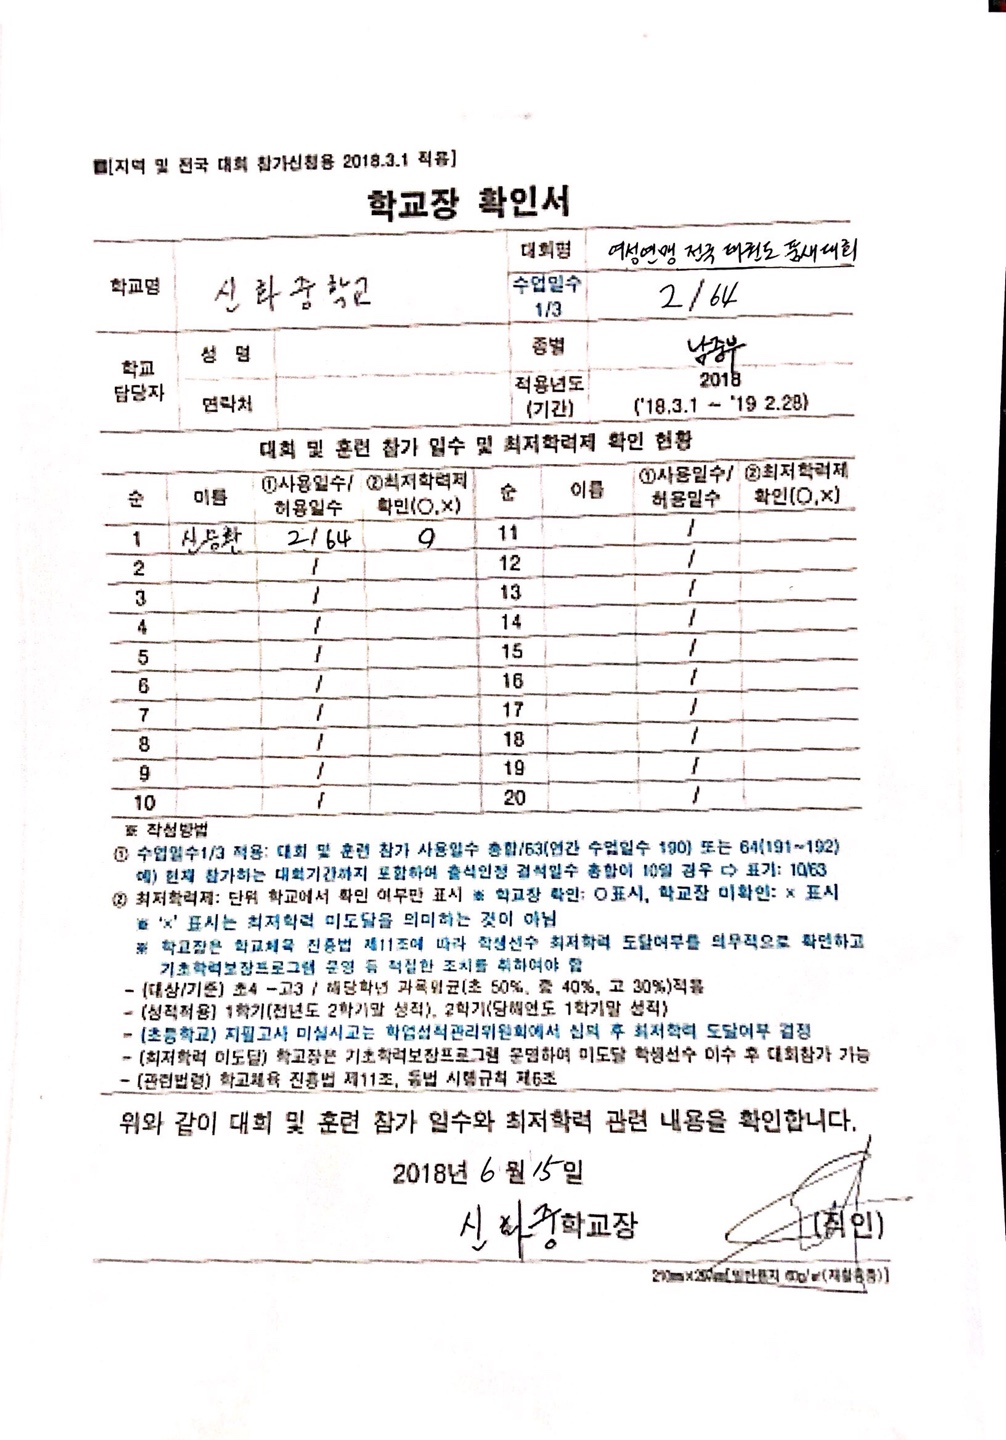 ■[지역 및 전국 대회 참가신청용 2018.3.1 적용]
학교장 확인서
학교명 신화중학교 대회명 여성연맹 전국 태권도 품새대회
수업일수 1/3 2/64
학교 담당자 성 명 종별 남중부
연락처 적용년도 (기간) 2018 ('18.3.1 ~ '19 2.28)
대회 및 훈련 참가 일수 및 최저학력제 확인 현황
순 이름 ①사용일수/허용일수 ②최저학력제 확인(○,×) 순 이름 ①사용일수/허용일수 ②최저학력제 확인(○,×)
1 신동환 2/64 O 11 /
2 / 12 /
3 / 13 /
4 / 14 /
5 / 15 /
6 / 16 /
7 / 17 /
8 / 18 /
9 / 19 /
10 / 20 /
※ 작성방법
① 수업일수1/3 적용: 대회 및 훈련 참가 사용일수 총합/63(연간 수업일수 190) 또는 64(191~192)
예) 현재 참가하는 대회기간까지 포함하여 출석인정 결석일수 총합이 10일 경우 ⇨ 표기: 10/63
② 최저학력제: 단위 학교에서 확인 여부만 표시 ※ 학교장 확인: ○표시, 학교장 미확인: × 표시
※ '×' 표시는 최저학력 미도달을 의미하는 것이 아님
※ 학교장은 학교체육 진흥법 제11조에 따라 학생선수 최저학력 도달여부를 의무적으로 확인하고
기초학력보장프로그램 운영 등 적절한 조치를 취하여야 함
- (대상/기준) 초4 -고3 / 해당학년 과목평균(초 50%, 중 40%, 고 30%)적용
- (성적적용) 1학기(전년도 2학기말 성적), 2학기(당해연도 1학기말 성적)
- (초등학교) 지필고사 미실시교는 학업성적관리위원회에서 심의 후 최저학력 도달여부 결정
- (최저학력 미도달) 학교장은 기초학력보장프로그램 운영하여 미도달 학생선수 이수 후 대회참가 가능
- (관련법령) 학교체육 진흥법 제11조, 동법 시행규칙 제6조
위와 같이 대회 및 훈련 참가 일수와 최저학력 관련 내용을 확인합니다.
2018년 6월 15일
신화중학교장 (직인)
210mm×297mm[일반용지 60g/㎡(재활용품)]